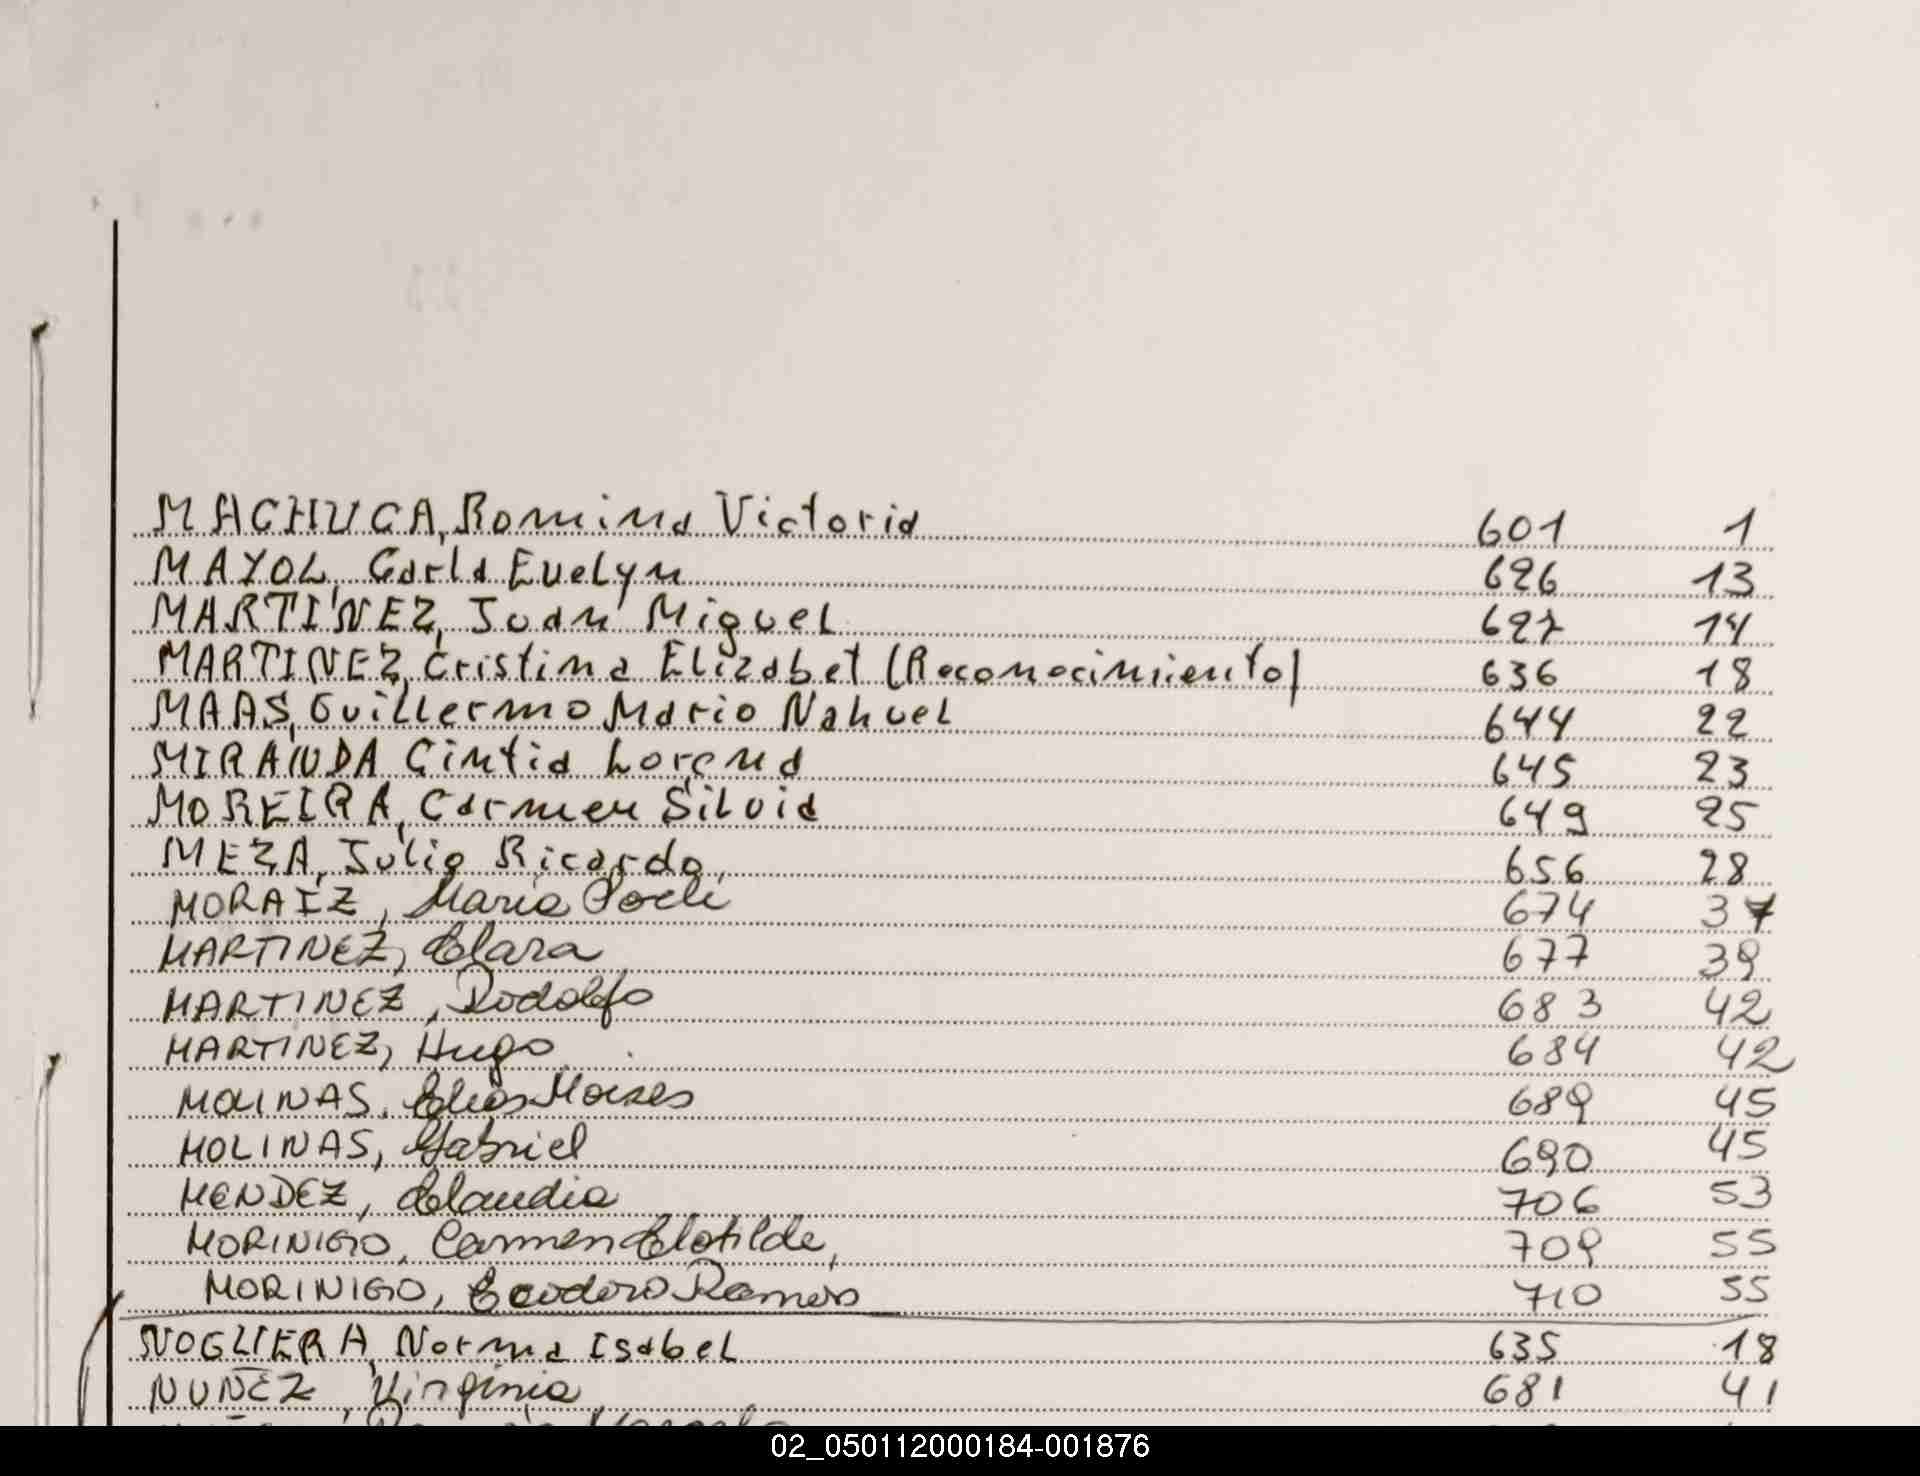 MACHUCA, Romina Victoria 601 1
MAYOL, Carla Evelyn 626 13
MARTINEZ, Juan Miguel 627 14
MARTINEZ, Cristina Elizabet (Reconocimiento) 636 18
MAAS, Guillermo Mario Nahuel 644 22
MIRANDA, Cintia Lorena 645 23
MOREIRA, Carmen Silvia 649 25
MEZA, Julio Ricardo 656 28
MORAIZ, Maria 674 37
MARTINEZ, Clara 677 39
MARTINEZ, Rodolfo 683 42
MARTINEZ, Hugo 684 42
MOLINAS, Elias Moises 689 45
MOLINAS, Gabriel 690 45
MENDEZ, Claudia 706 53
MORINIGO, Carmen Clotilde, 709 55
MORINIGO, Teodoro Ramos 710 55
NOGUERA, Norma Isabel 635 18
NUÑEZ, Virginia 681 41
02_050112000184-001876